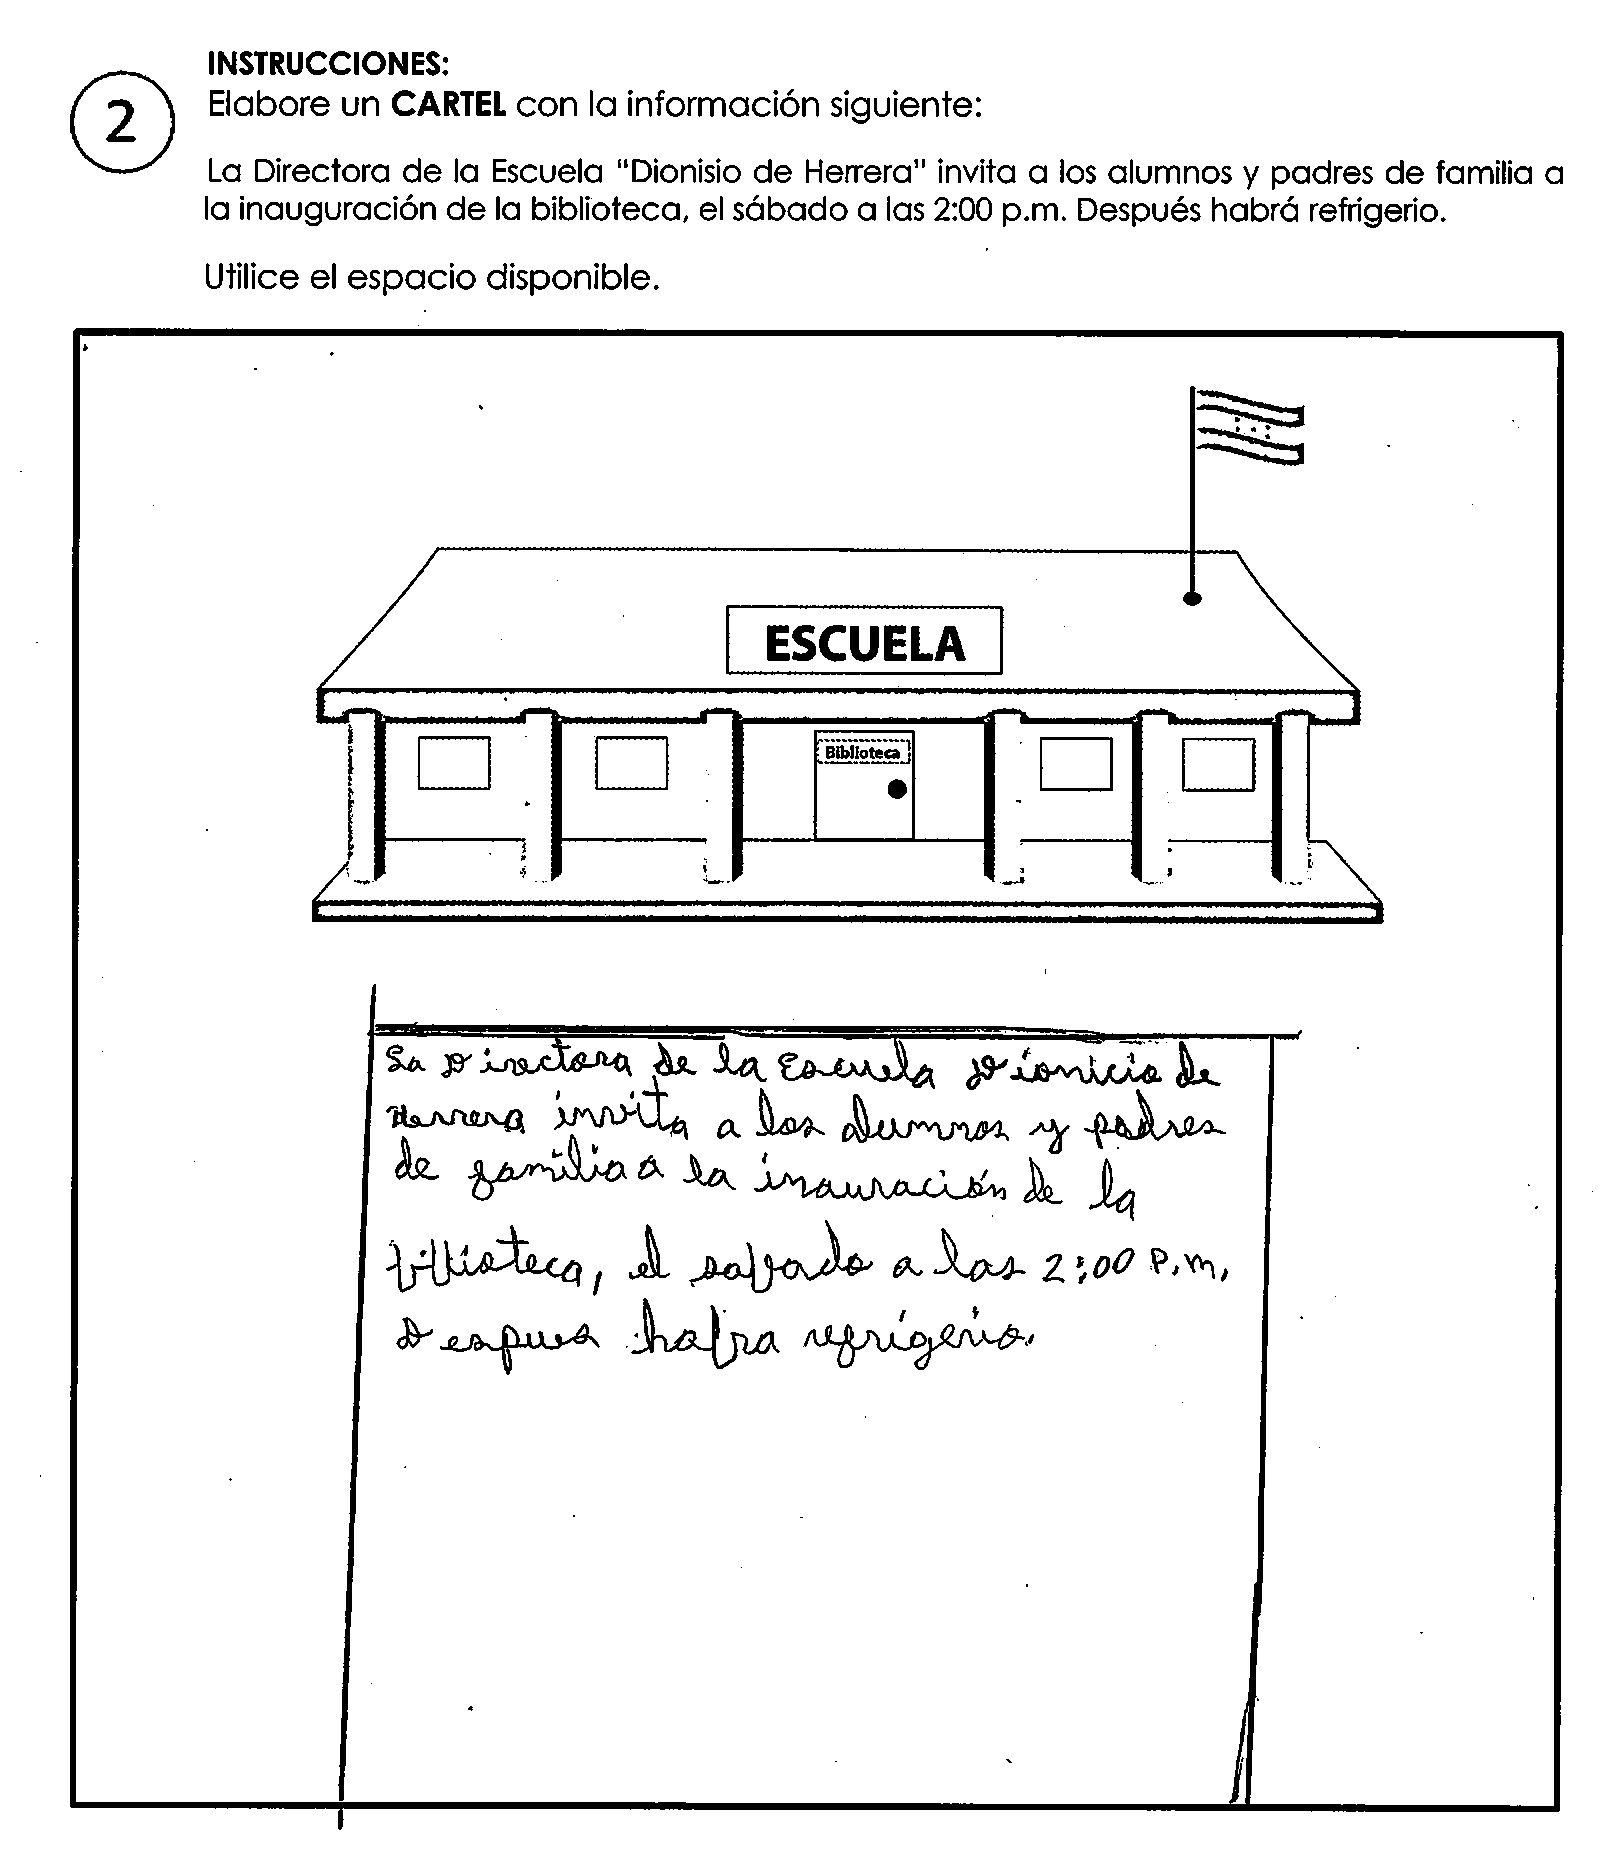 INSTRUCCIONES:
2
Elabore un CARTEL con la información siguiente:
La Directora de la Escuela "Dionisio de Herrera" invita a los alumnos y padres de familia a
la inauguración de la biblioteca, el sábado a las 2:00 p.m. Después habrá refrigerio.
Utilice el espacio disponible.
ESCUELA
Biblioteca
La Directora de la Escuela Dionicio de
Herrera invita a los alumnos y padres
de familia a la inauración de la
biblioteca, el sabado a las 2:00 P.m.
Despues habra refrigerio.